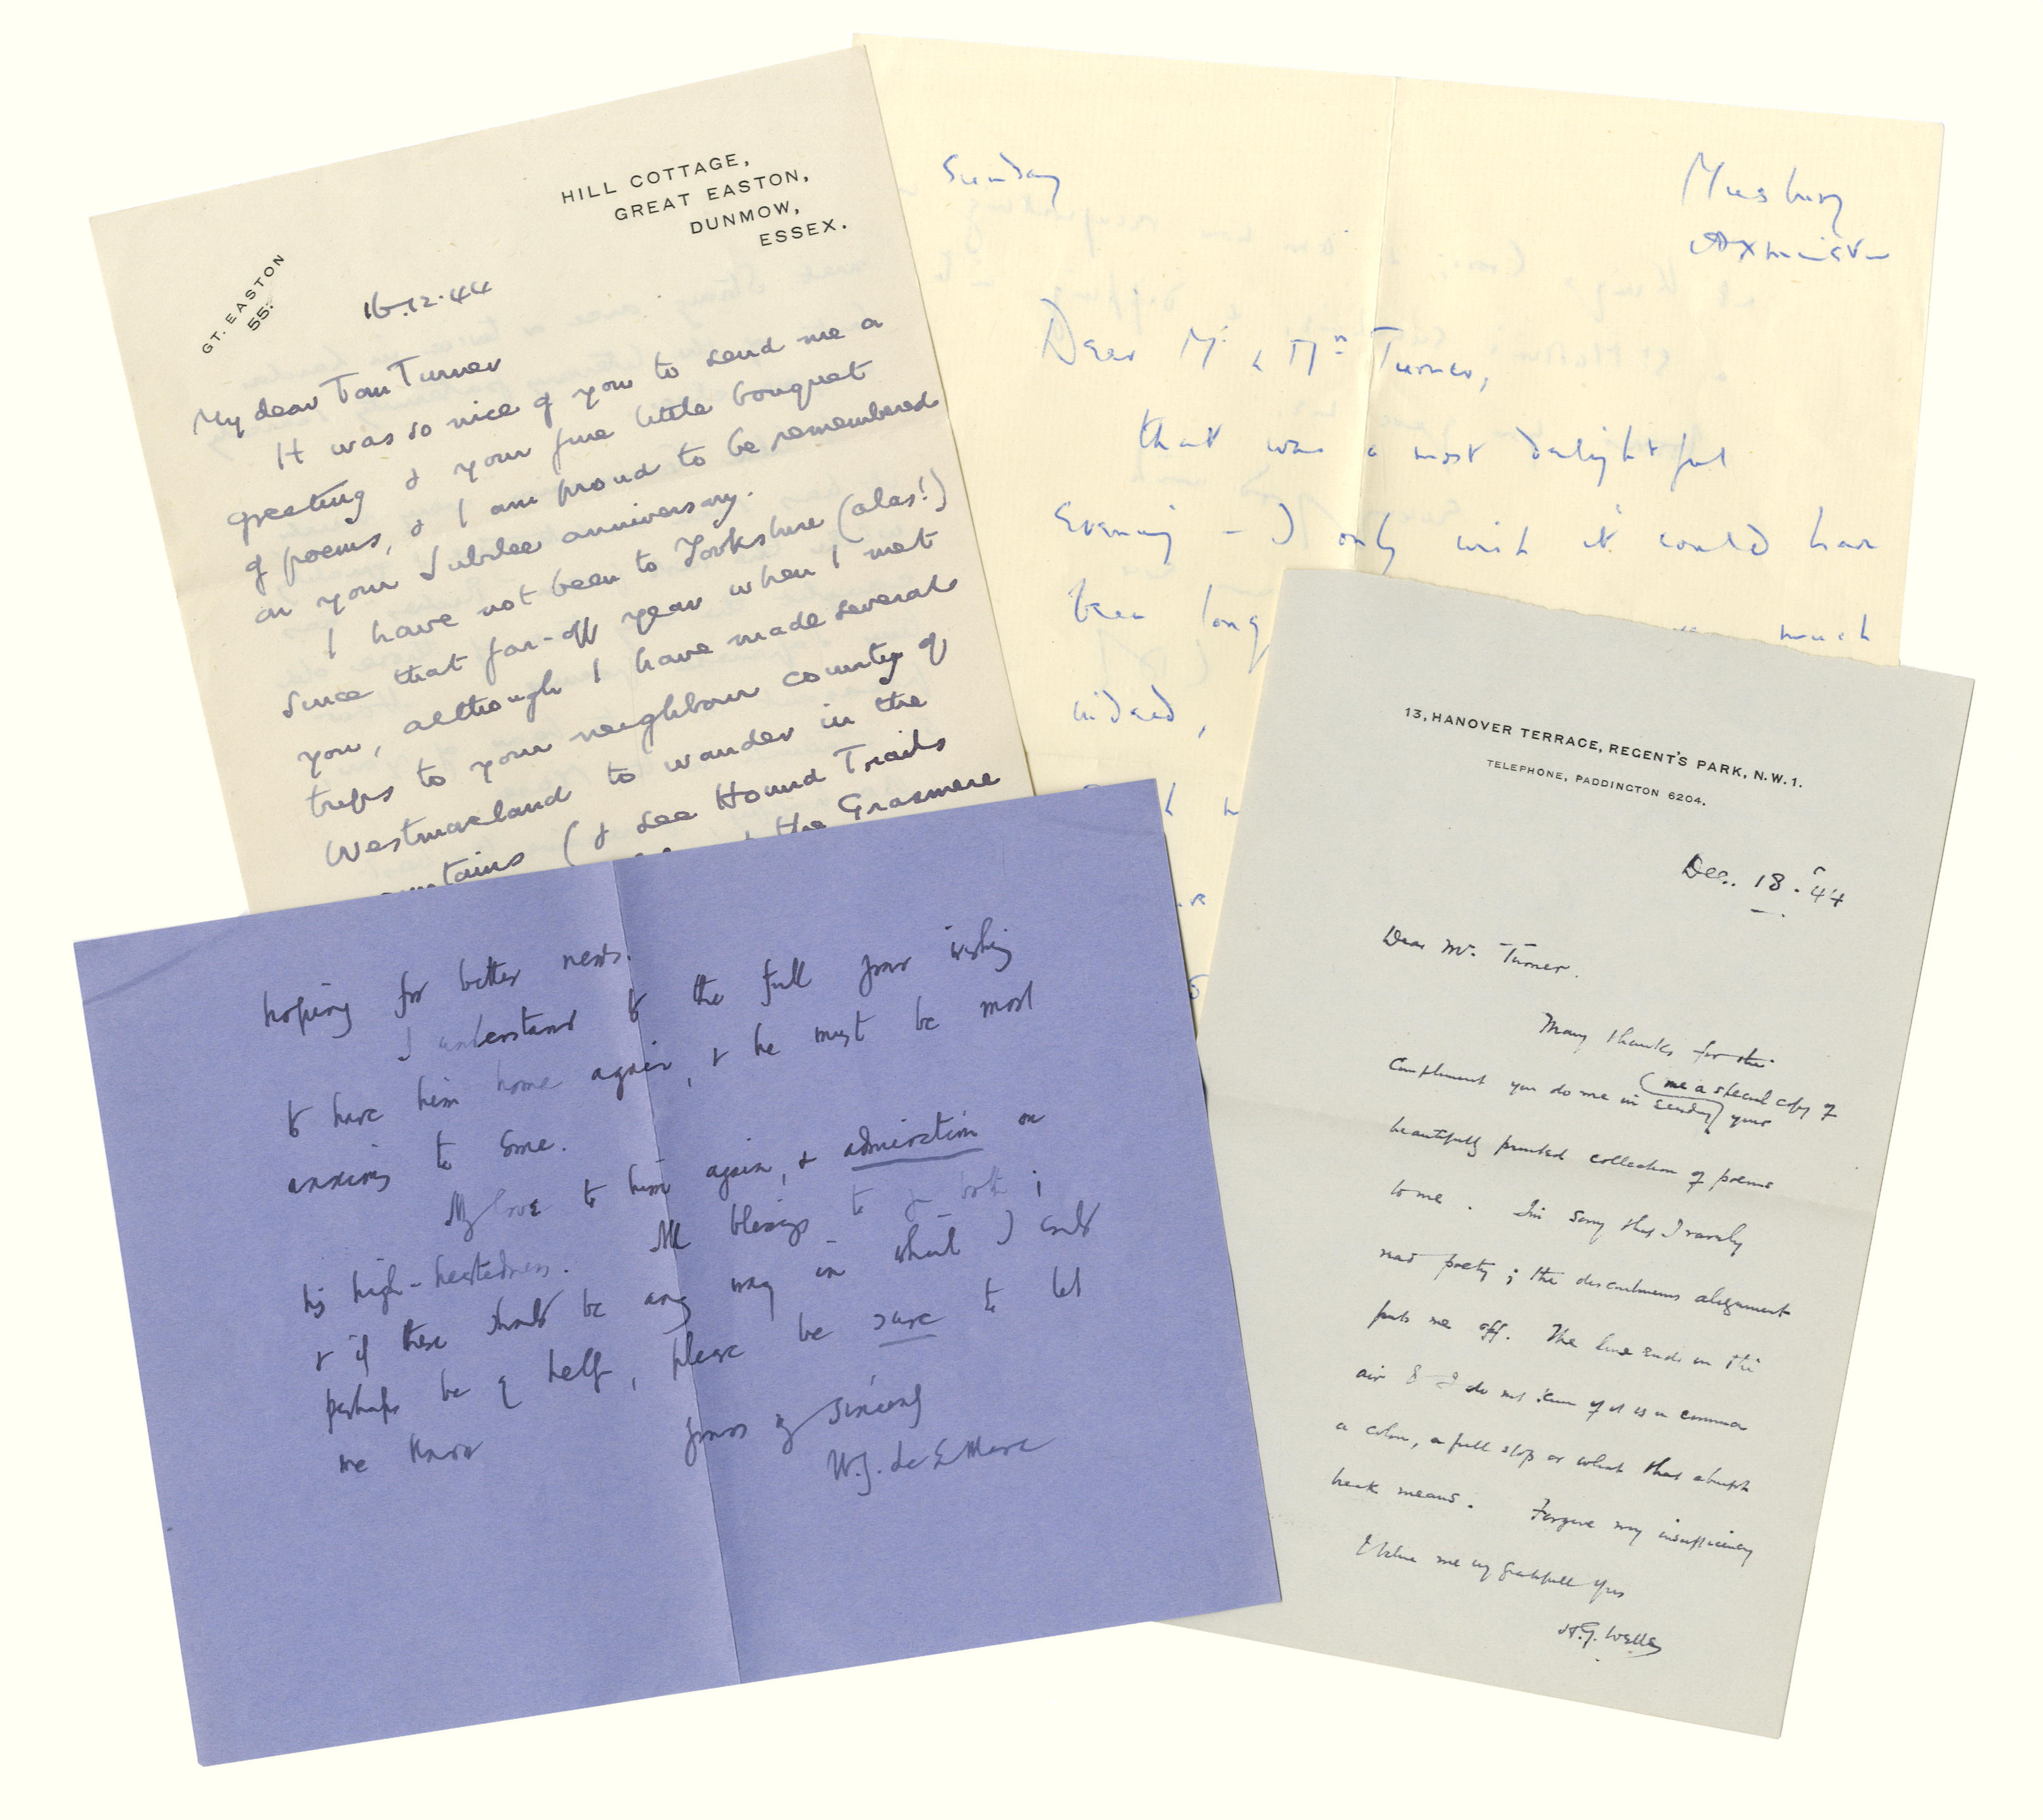 HILL COTTAGE,
GREAT EASTON,
DUNMOW,
ESSEX.
GT. EASTON
55.
16.12.44
My dear Tom Turner
It was so nice of you to send me a
greeting & your fine little bouquet
of poems, & I am proud to be remembered
on your Jubilee anniversary.
I have not been to Yorkshire (alas!)
since that far-off year when I met
you, although I have made several
trips to your neighbour county of
Westmoreland to wander in the
(& see Hound Trails
the Grasmere
Sunday
Musbury
Axminster
Dear Mr & Mrs Turner,
that was a most delightful
evening - I only wish it could have
been long
much
indeed,
hoping for better news.
I understand to the full your wishing
to have him home again, & he must be most
anxious to come.
My love to him again, & admiration on
his high-heartedness. All blessings to you both;
& if there should be any way in which I could
perhaps be of help, please be sure to let
me know
Yours sincerely
W.J. de la Mare
13, HANOVER TERRACE, REGENT'S PARK, N.W.1.
TELEPHONE, PADDINGTON 6204.
Dec. 18. 44
Dear Mr. Turner.
Many thanks for the
compliment you do me in sending me a special copy of your
beautifully printed collection of poems
to me. I'm sorry that I rarely
read poetry; the discontinuous alignment
puts me off. The line ends in the
air & I do not know if it is a comma
a colon, a full stop or what that abrupt
break means. Forgive my insufficiency
& believe me very gratefully yours
H.G. Wells